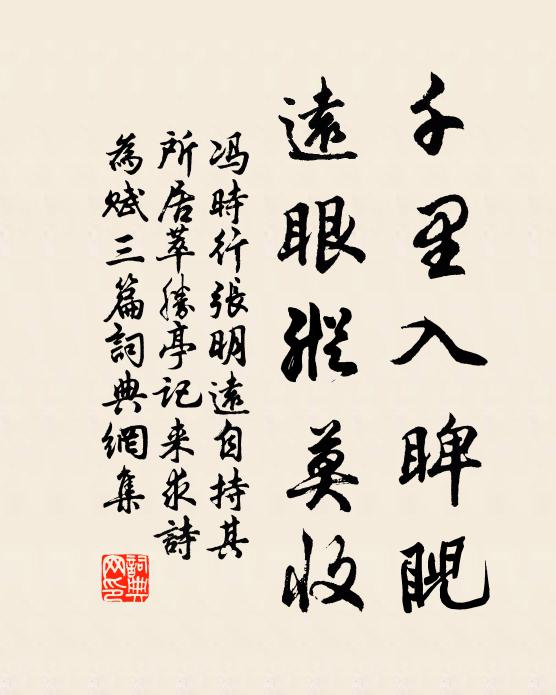 千里入睥睨
遠眼縱莫收
冯時行張明遠自持其
所居萃勝亭記来求詩
為赋三篇詞典網集
詞典
网印